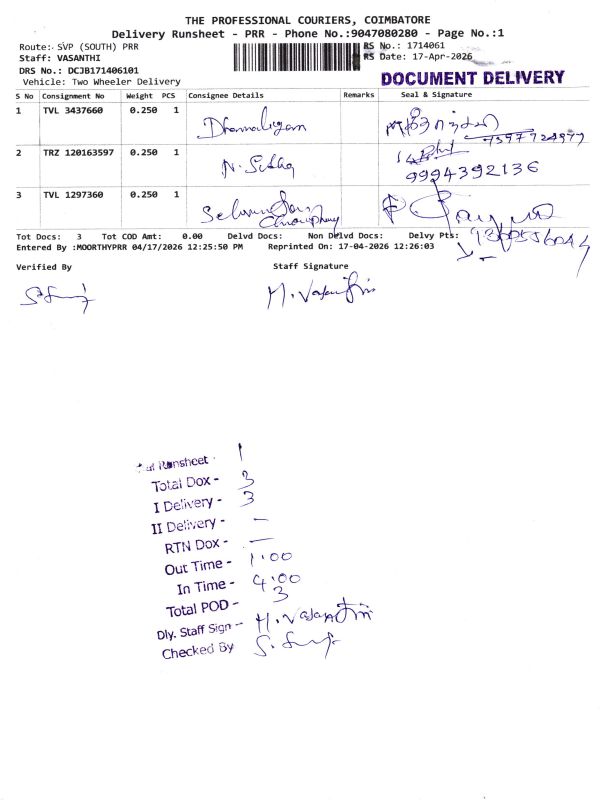 THE PROFESSIONAL COURIERS, COIMBATORE
Delivery Runsheet - PRR - Phone No.:9047080280 - Page No.:1
Route: SVP (SOUTH) PRR
RS No.: 1714061
Staff: VASANTHI
RS Date: 17-Apr-2026
DRS No.: DCJB171406101
Vehicle: Two Wheeler Delivery
DOCUMENT DELIVERY
S No Consignment No Weight PCS Consignee Details Remarks Seal & Signature
1 TVL 3437660 0.250 1
2 TRZ 120163597 0.250 1
9994392136
3 TVL 1297360 0.250 1
Tot Docs: 3 Tot COD Amt: 0.00 Delvd Docs: Non Delvd Docs: Delvy Pts:
Entered By :MOORTHYPRR 04/17/2026 12:25:50 PM Reprinted On: 17-04-2026 12:26:03
Verified By Staff Signature
M. Vasanthi
Runsheet - 1
Total Dox - 3
I Delivery - 3
II Delivery - –
RTN Dox - —
Out Time - 1.00
In Time - 4.00
Total POD - 3
Dly. Staff Sign - M. Vasanthi
Checked By